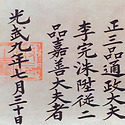 正三品通政大夫
李完洙陞從二
品嘉善大夫者
光武九年七月三十日